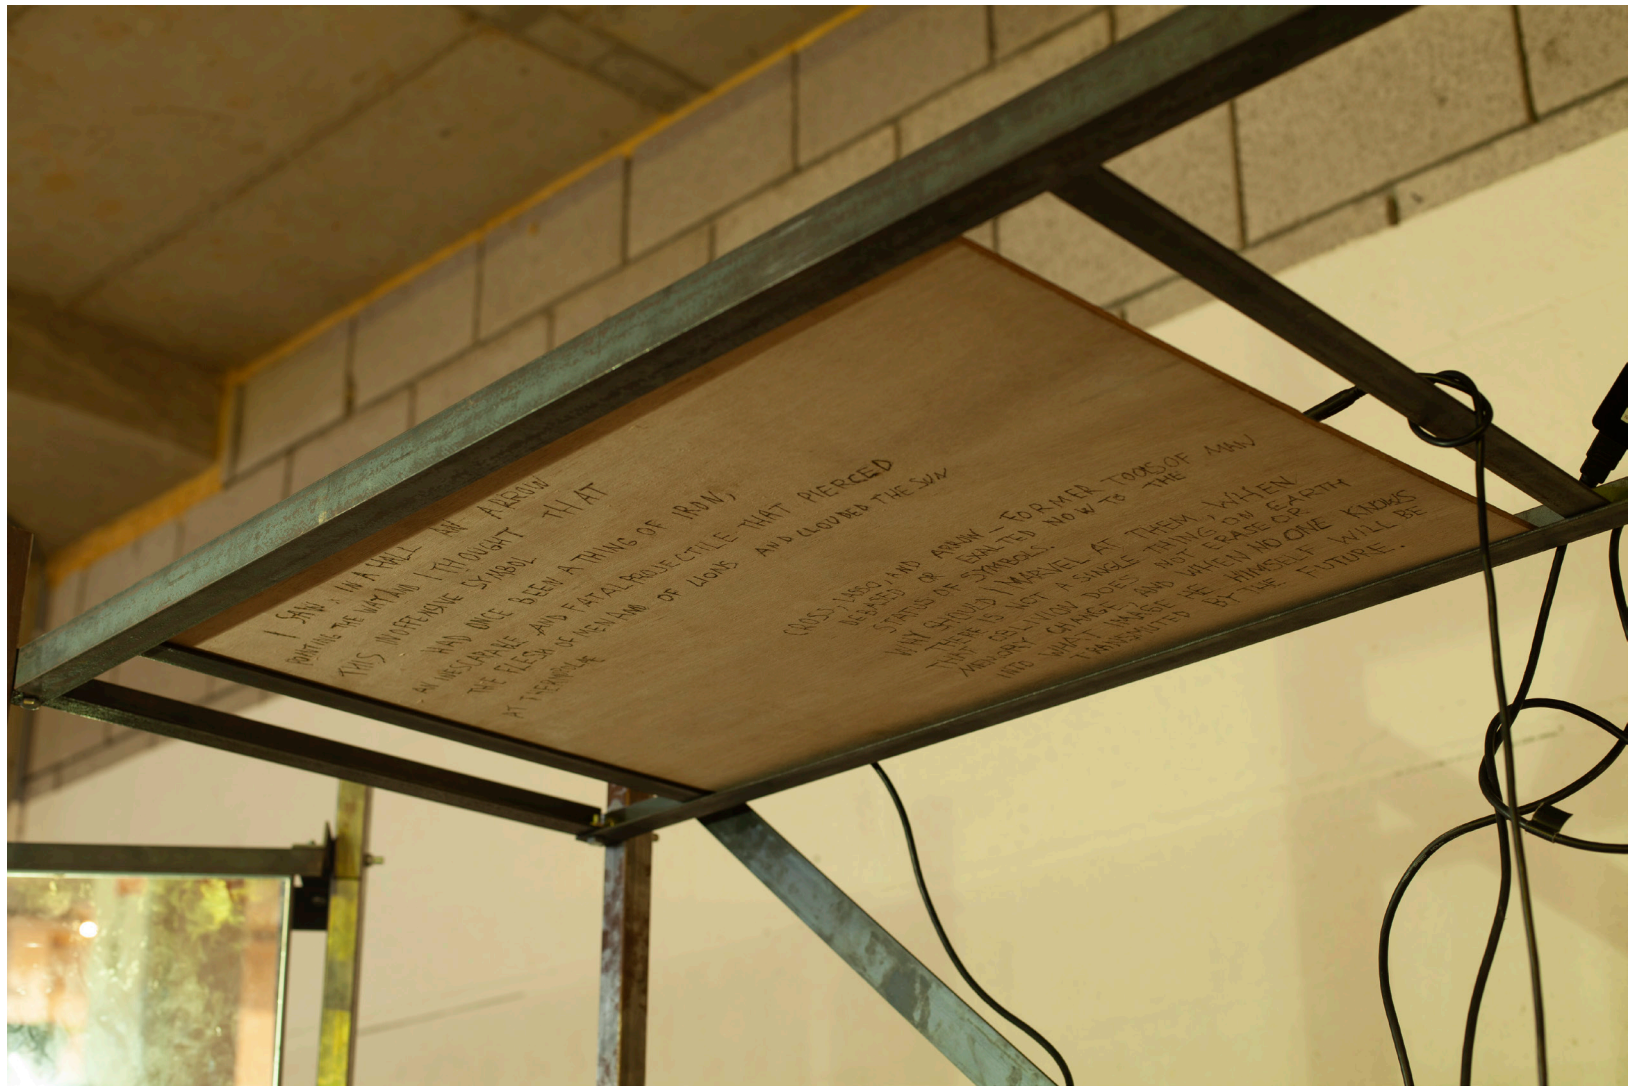 I SAW IN A HALL AN ARROW
POINTING THE WAY AND I THOUGHT
THIS INOFFENSIVE SYMBOL THAT
HAD ONCE BEEN A THING OF IRON,
AN INESCAPABLE AND FATAL PROJECTILE THAT PIERCED
THE FLESH OF MEN AND OF LIONS AND CLOUDED THE SUN
AT THERMOPYLAE
CROSS, LASSO, AND ARROW - FORMER TOOLS OF MAN
DEBASED OR EXALTED NOW TO THE
STATUS OF SYMBOLS.
WHY SHOULD I MARVEL AT THEM, WHEN
THERE IS NOT A SINGLE THING ON EARTH
THAT OBLIVION DOES NOT ERASE OR
MEMORY CHANGE AND WHEN NO ONE KNOWS
INTO WHAT IMAGE HE HIMSELF WILL BE
TRANSMUTED BY THE FUTURE.